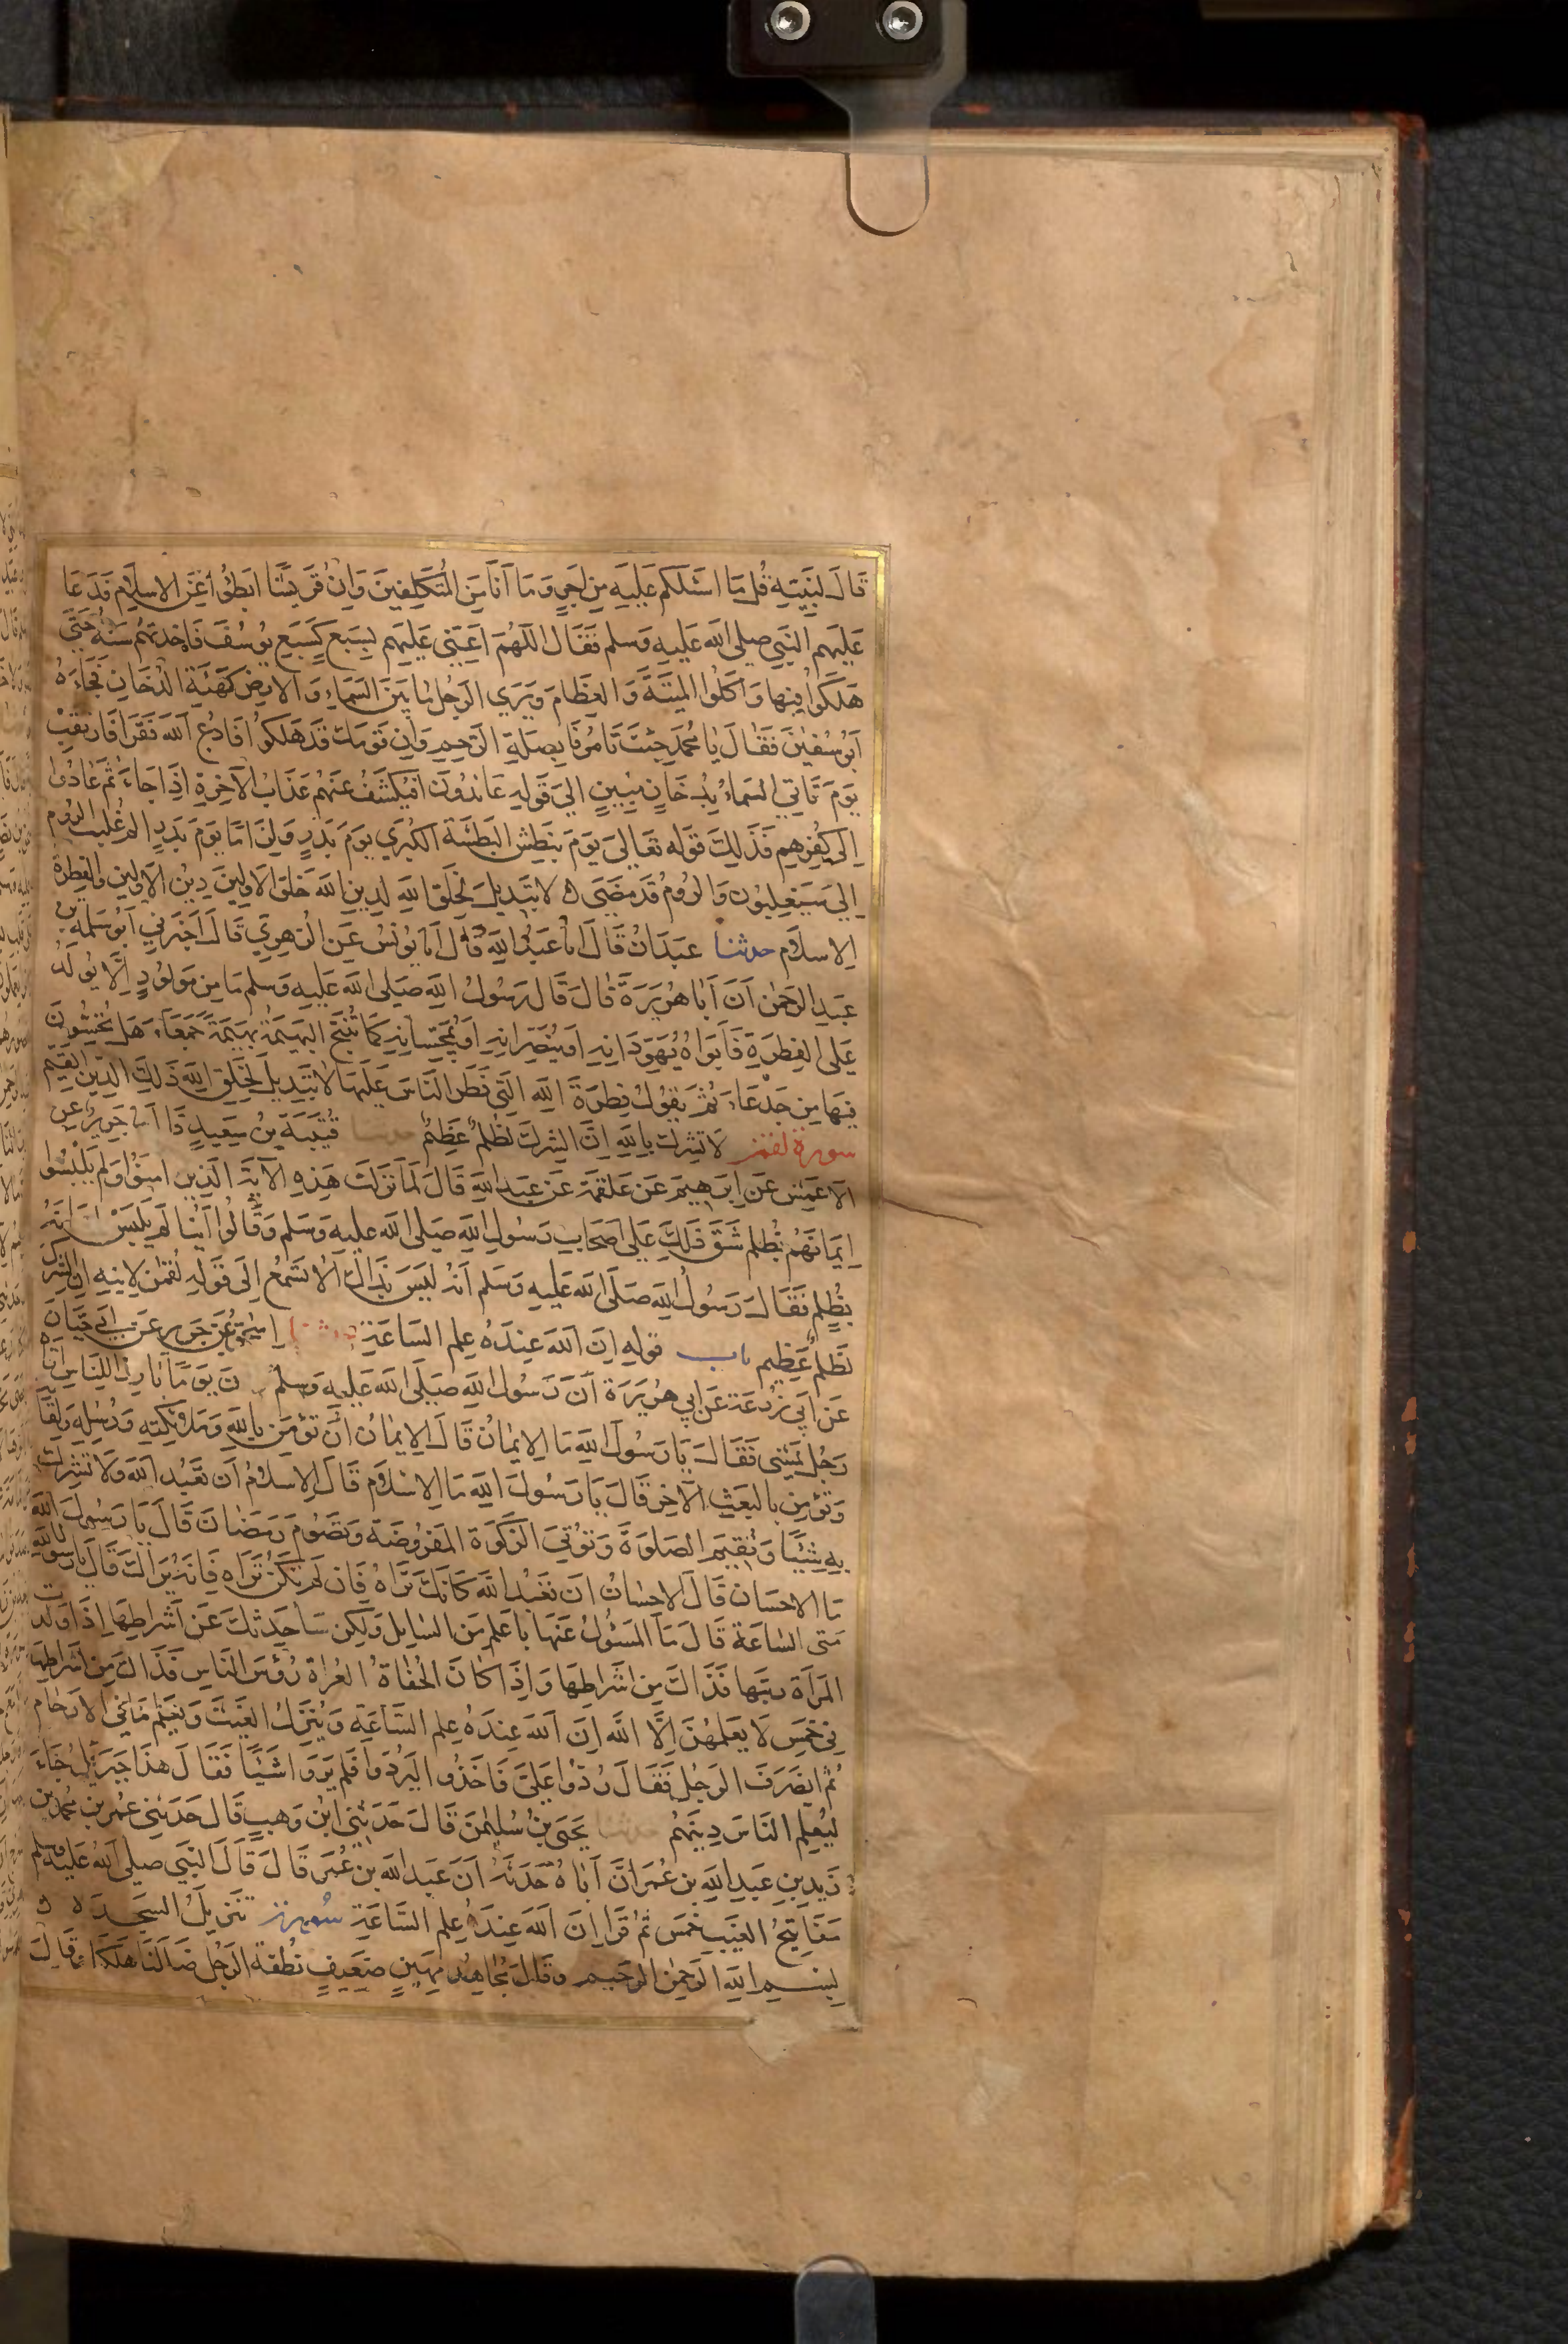 قَالَ لِنَبِيِّهِ قُل مَا اسْئَلكُم عَلَيهِ مِن اَجرٍ وَمَا اَنَا مِنَ المُتَكَلِّفِينَ وَاِنَّ قُرَيشًا ابطَؤُا عَنِ الاِسلَامِ فَدَعَا
عَلَيهِم النَّبِي صلى الله عَليهِ وَسلم فَقَالَ اللَّهُمَّ اَعِنِّي عَلَيهِم بِسَبعٍ كَسَبعِ يُوسُفَ فَاَخَذَتهُم سَنَةٌ حَتَّى
هَلَكُوا فِيهَا وَاَكَلُوا المَيتَةَ وَالعِظَامَ وَيَرَي الرَجُلُ مَا بَينَ السَّمَاءِ وَالاَرضِ كَهَيئَةِ الدُّخَانِ فَجَاءَهُ
اَبُو سُفيٰنَ فَقَالَ يَا مُحَمَّد جِئتَ تَامُرُنَا بِصِلَةِ الرَّحِمِ وَاِن قَومَكَ قَد هَلَكُوا فَادعُ اللهَ فَقَرَا فَارتَقِبْ
يَومَ تَاتِي السَّمَاءُ بِدُخَانٍ مُبِينٍ اِلَى قَولِهِ عَائِدُونَ اَفَيُكشَفُ عَنهُم عَذَابُ الآخِرَةِ اِذَا جَاءَ ثُمَّ عَادُوا
اِلَى كُفرِهِم فَذَلِكَ قَوله تَعَالَى يَومَ نَبطِشُ البَطشَةَ الكُبرَي يَومَ بَدرٍ وَلِزَامًا يَومَ بَدرٍ الم غُلِبَت الرُّوم
اِلَى سَيَغلِبُون وَالرُّومُ قَد مَضَى ه لَا تَبدِيلَ لِخَلقِ اللهِ لِدِينِ اللهِ خَلقُ الاَوَّلِينَ دِينُ الاَوَّلِين وَالفِطرَة
الاِسلَام حدثنا عَبدَانُ قَالَ اَنَا عَبدُ اللهِ قَالَ اَنَا يُونُسُ عَنِ الزُّهرِيِّ قَالَ اَخبَرَنِي اَبُو سَلَمَةَ بن
عَبدِ الرَّحمٰن اَنَّ اَبَا هُرَيرَةَ قَالَ قَالَ رَسُولُ اللهِ صَلى الله عَليهِ وسلم مَا مِن مَولُودٍ اِلَّا يُولَدُ
عَلَى الفِطرَةِ فَاَبَوَاهُ يُهَوِّدَانِهِ اَو يُنَصِّرَانِهِ اَو يُمَجِّسَانِهِ كَمَا تُنتَجُ البَهِيمَةُ بَهِيمَةً جَمعَاءَ هَل تُحِسُّونَ
فِيهَا مِن جَدعَاءَ ثُمَّ يَقُولُ فِطرَةَ اللهِ الَّتِي فَطَرَ النَّاسَ عَلَيهَا لَا تَبدِيلَ لِخَلقِ اللهِ ذَلِكَ الدِّينُ القَيِّم
سورة لقمن لَا تُشرِك بِاللهِ اِنَّ الشِّركَ لَظُلمٌ عَظِيمٌ حدثنا قُتَيبَةُ بنُ سَعِيدٍ جَرِيرٌ عن
الاَعمَشِ عَن اِبرَهِيمَ عَن عَلقَمَةَ عَن عَبدِ اللهِ قَالَ لَمَّا نَزَلَت هَذِهِ الآيَةُ الَّذِينَ امَنُوا وَلَم يَلبِسُوا
اِيمَانَهُم بِظُلمٍ شَقَّ ذَلِكَ عَلَى اَصحَابِ رَسُولِ اللهِ صَلى الله عليهِ وَسَلم وَقَالُوا اَيُّنَا لَم يَلبِسْ اِيمَانَهُ
بِظُلمٍ فَقَالَ رَسُولُ اللهِ صَلَّى الله عَليهِ وَسَلم اَنَّهُ لَيسَ بِذَاكَ اَلَا تَسمَعُ اِلَى قَولِ لُقمٰن لِابنِهِ اِنَّ الشِّركَ
لَظُلمٌ عَظِيم باب قَولِهِ اِنَّ اللهَ عِندَهُ عِلمُ السَّاعَةِ حدثنا اِسحٰقُ عَن جَرِيرٍ عَن اَبِي حَيَّانَ
عَن اَبِي زُرعَةَ عَن اَبِي هُرَيرَةَ اَنَّ رَسُولَ اللهِ صَلَّى اللهُ عَليهِ وَسَلم كَانَ يَومًا بَارِزًا لِلنَّاسِ اَتَاهُ
رَجُلٌ يَمشِي فَقَالَ يَا رَسُولَ اللهِ مَا الاِيمَانُ قَالَ الاِيمَانُ اَن تُؤمِنَ بِاللهِ وَمَلَائِكَتِهِ وَرُسُلِهِ وَلِقَائِهِ
وَتُؤمِن بِالبَعثِ الآخِرِ قَالَ يَا رَسُولَ اللهِ مَا الاِسلَام قَالَ الاِسلَامُ اَن تَعبُدَ اللهَ وَلَا تُشرِكَ
بِهِ شَيئًا وَتُقِيمَ الصَّلوةَ وَتُؤتِيَ الزَّكَوةَ المَفرُوضَةَ وَتَصُومَ رَمَضَانَ قَالَ يَا رَسُولَ اللهِ
مَا الاِحسَان قَالَ الاِحسَانُ اَن تَعبُدَ اللهَ كَاَنَّكَ تَرَاهُ فَاِن لَم تَكُن تَرَاه فَاِنَّهُ يَرَاكَ قَالَ يَا رسولَ اللهِ
مَتَى السَّاعَة قَالَ مَا المَسؤُلُ عَنهَا بِاَعلَم مِنَ السَّايِلِ وَلَكِن سَاُحَدِّثُكَ عَن اَشرَاطِهَا اِذَا وَلَدَت
المَراَةُ رَبَّتَهَا فَذَاكَ مِن اَشرَاطِهَا وَاِذَا كَانَ الحُفَاةُ العُرَاةُ رُؤُسَ النَّاسِ فَذَاكَ مِن اَشرَاطِهَا
فِي خَمسٍ لَا يَعلَمُهُنَّ اِلَّا اللهُ اِنَّ اللهَ عِندَهُ عِلمُ السَّاعَةِ وَيُنَزِّلُ الغَيثَ وَيَعلَمُ مَا فِي الاَرحَام
ثُمَّ انصَرَفَ الرَجُلُ فَقَالَ رُدُّوا عَلَيَّ فَاَخَذُوا لِيَرُدُّوا فَلَم يَرَوا شَيئًا فَقَالَ هَذَا جِبرَئِيلُ جَاءَ
لِيُعَلِّمَ النَّاسَ دِينَهُم حدثنا يَحيَى بنُ سُلَيمٰنَ قَالَ حَدَّثَنِي ابنُ وَهبٍ قَال حَدَّثَنِي عُمَرُ بن مُحمَّد بن
زَيدِ بنِ عَبدِ اللهِ بن عُمَرَ اَنَّ اَبَاهُ حَدَّثَهُ اَنَّ عَبدَ اللهِ بن عُمَرَ قَالَ قَالَ النَّبِي صلى اللهُ عَليهِ وسلم
مَفَاتِيحُ الغَيبِ خَمسٌ ثُمَّ قَرَا اِنَّ اللهَ عِندَهُ عِلمُ السَّاعَةِ سُورة تَنزِيلُ السَّجدَة
بِسمِ اللهِ الرَّحمٰنِ الرَّحِيمِ وَقَالَ مُجَاهِد مَهِينٍ ضَعِيفٍ نُطفَةُ الرَّجُل ضَلَلنَا هَلَكنَا وَقَالَ